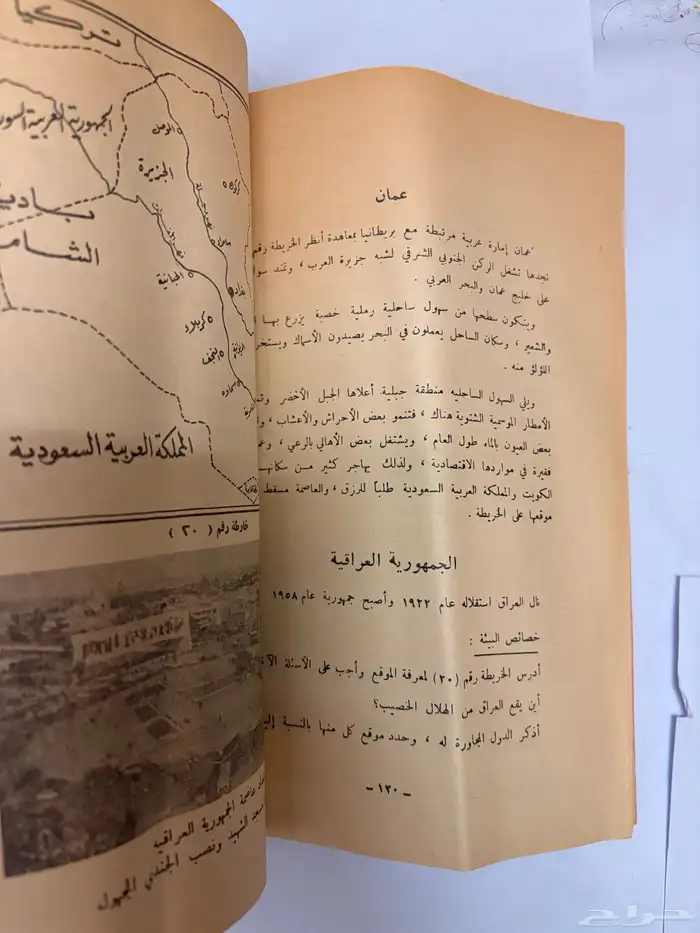 عمان
عمان إمارة عربية مرتبطة مع بريطانيا بمعاهدة أنظر الخريطة رقم
تجدها تشغل الركن الجنوبي الشرقي لشبه جزيرة العرب ، وتمتد
على خليج عمان والبحر العربي .
ويتكون سطحها من سهول ساحلية رملية خصبة يزرع بها
والشعير ، وسكان الساحل يعملون في البحر يصيدون الأسماك
اللؤلؤ منه .
ويلي السهول الساحليه منطقة جبلية أعلاها الجبل الأخضر
الأمطار الموسمية الشتوية هناك ، فتنمو بعض الأحراش والأعشاب ،
بعض العيون بالماء طول العام ، ويشتغل بعض الأهالي بالرعي ،
فقيرة في مواردها الاقتصادية ، ولذلك يهاجر كثير من سكانها
الكويت والمملكة العربية السعودية طلباً للرزق ، والعاصمة مسقط
موقعها على الخريطة .
الجمهورية العراقية
نال العراق استقلاله عام ١٩٢٢ وأصبح جمهورية عام ١٩٥٨
خصائص البيئة :
أدرس الخريطة رقم (٢٠) لمعرفة الموقع وأجب على الأسئلة
أين يقع العراق من الهلال الخصيب؟
أذكر الدول المجاورة له ، وحدد موقع كل منها بالنسبة
– ١٢٠ –
تركيا
الجمهورية العربية
الموصل
الجزيرة
كركوك
نهر دجلة
سامراء
بادية
الشام
الحبانية
بغداد
كربلاء
النجف
سماوه
المملكة العربية السعودية
خارطة رقم ( ٢٠ )
عاصمة الجمهورية العراقية
مسجد الشهيد ونصب الجندي المجهول
حراج